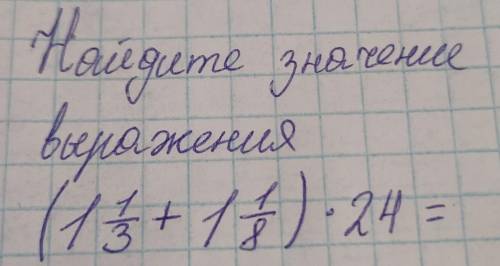 Найдите значение
выражения
(1 1/3 + 1 1/8) · 24 =